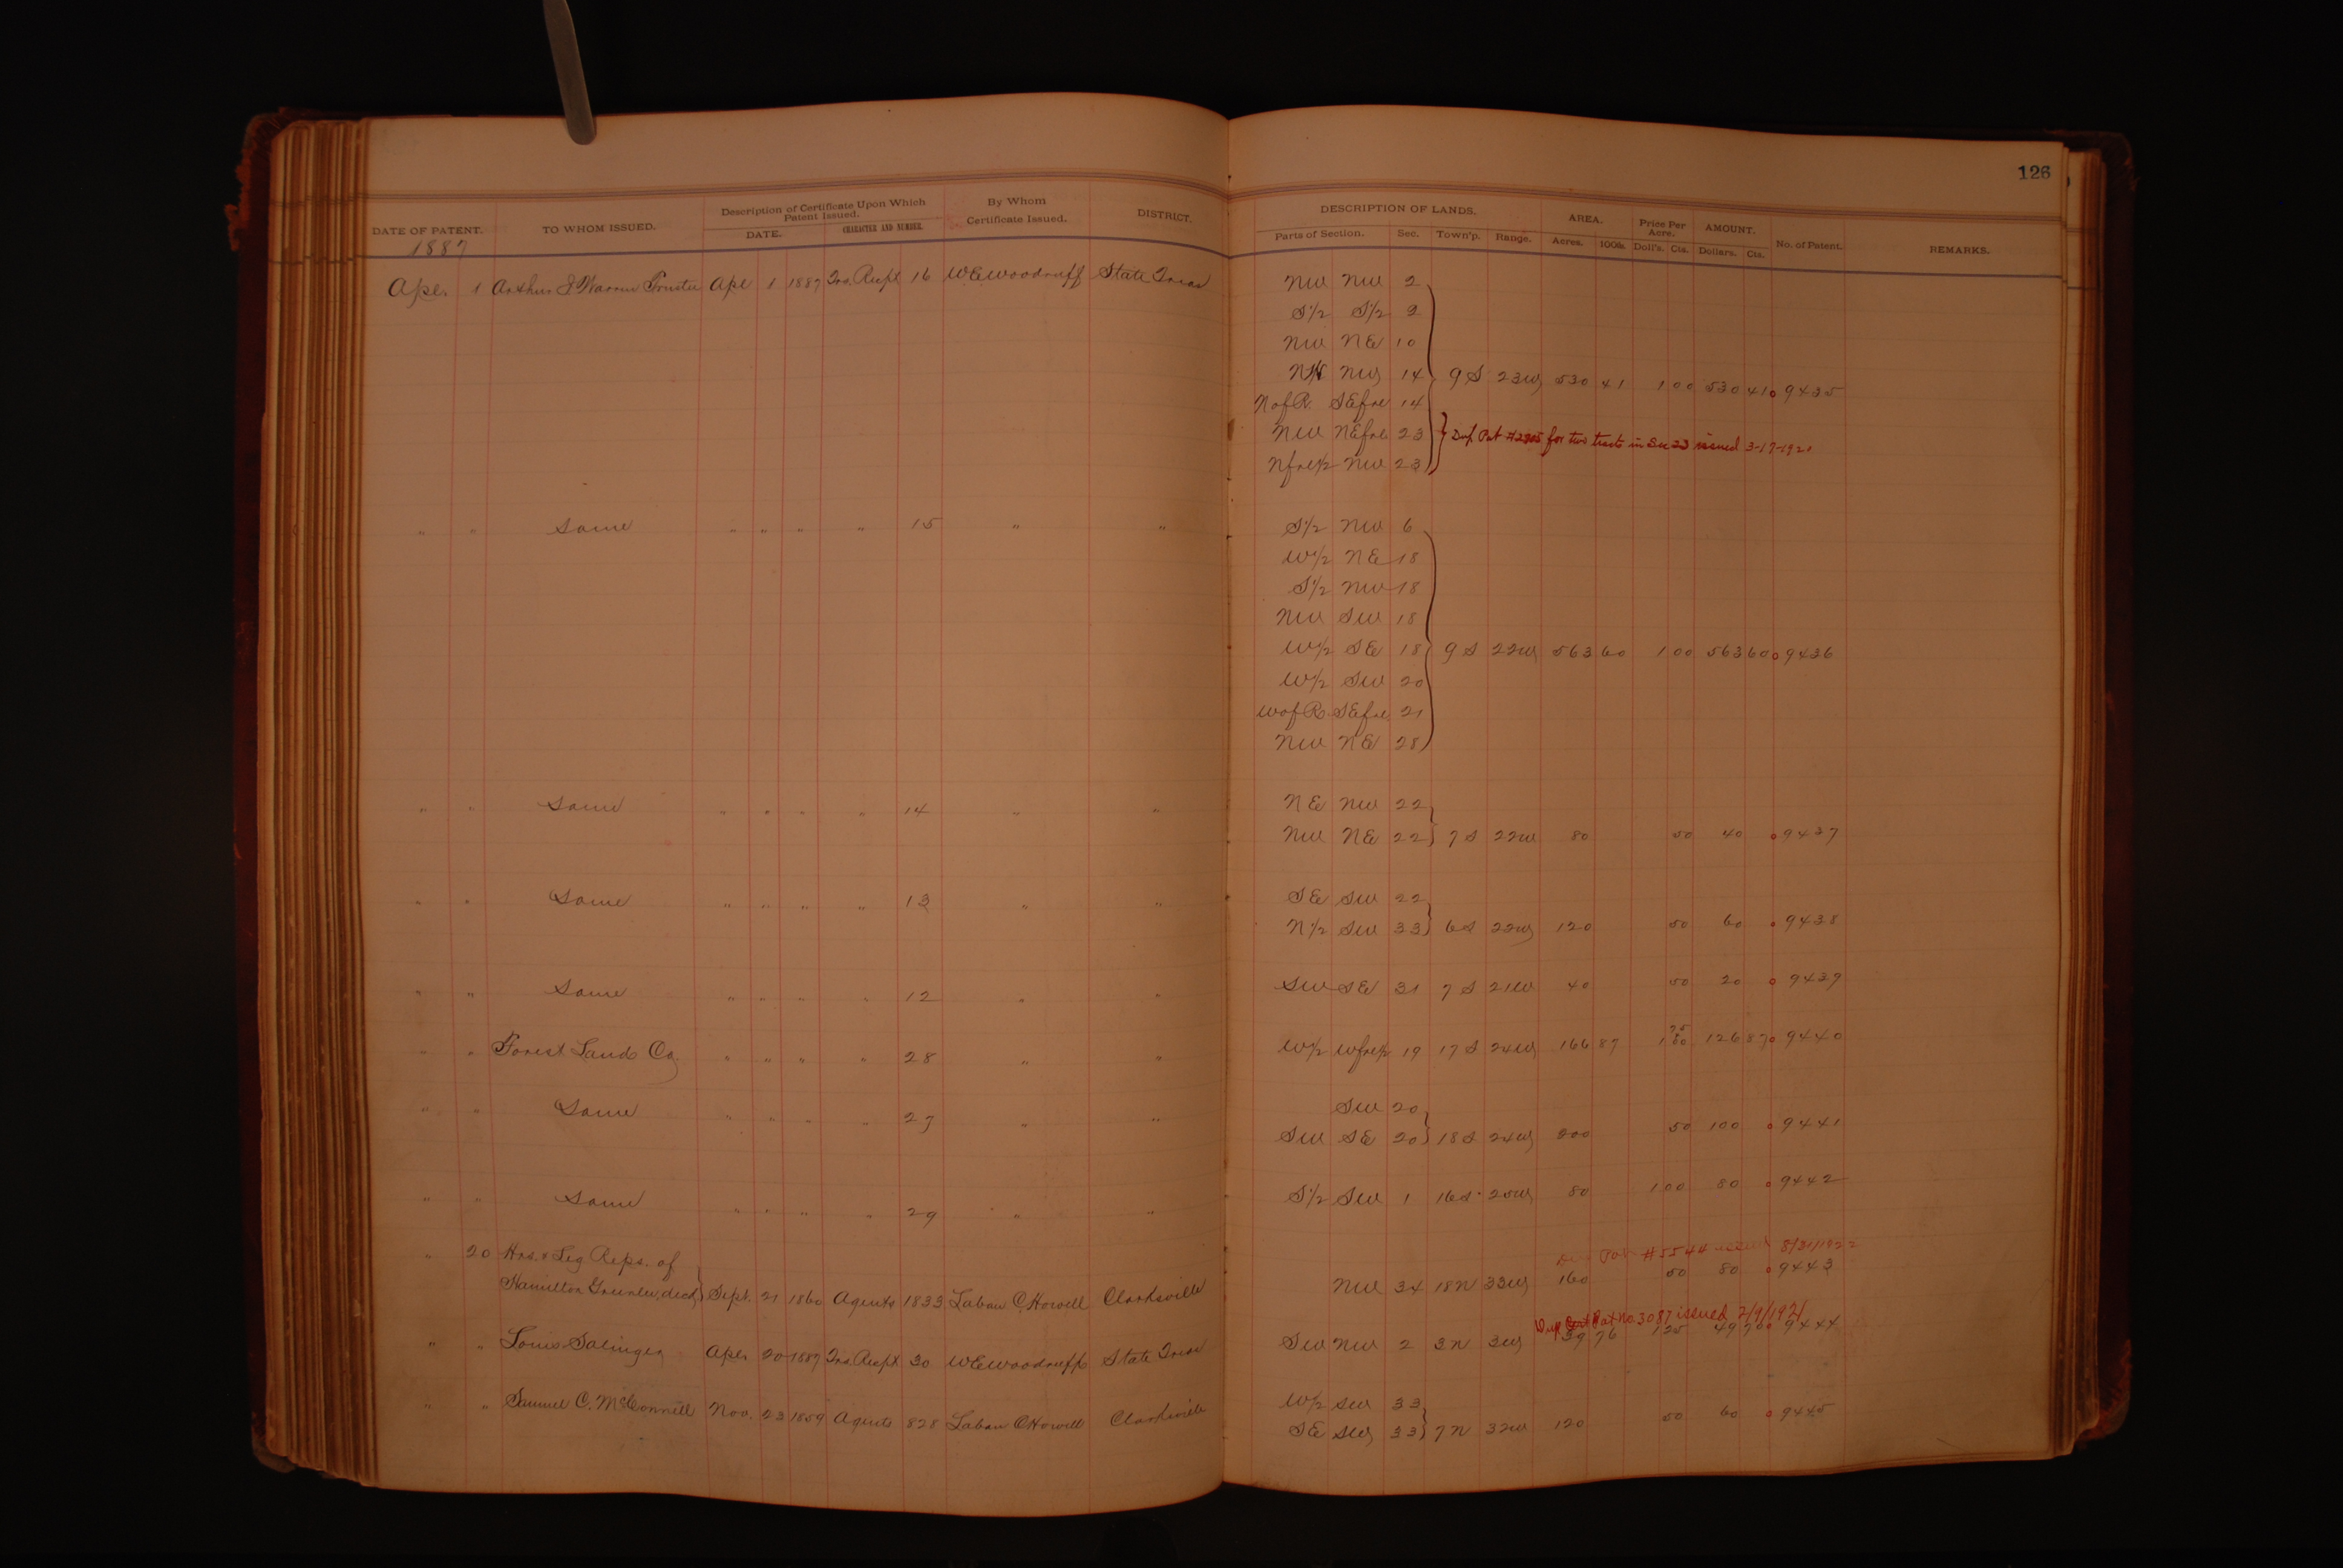 126
DATE OF PATENT. TO WHOM ISSUED. Description of Certificate Upon Which Patent Issued. DATE. CHARACTER AND NUMBER. By Whom Certificate Issued. DISTRICT. DESCRIPTION OF LANDS. Parts of Section. Sec. Town'p. Range. AREA. Acres. 100ths. Price Per Acre. Doll's. Cts. AMOUNT. Dollars. Cts. No. of Patent. REMARKS.
1887
Apl. 1 Arthur J Warren Trustee Apl 1 1887 Tra. Recpt 16 W.E. Woodruff State Treas NW NW 2
S1/2 S1/2 2
NW NE 10
NW 14 9 S 23W 530 41 1 00 530 41 9435
N of R. SEfrl 14
NW NEfrl 23 Dup Pat for two tracts in Sec 23 issued 3-17-1921
Nfrl1/2 NW 23
" " Same " " " " 15 " " S1/2 NW 6
W1/2 NE 18
S1/2 NW 18
NW SW 18
W1/2 SE 18 9 S 22W 563 60 1 00 563 60 9436
W1/2 SW 20
W of R. SEfrl 21
NW NE 28
" " Same " " " " 14 " " NE NW 22
NW NE 22 7 S 22W 80 50 40 9437
" " Same " " " " 13 " " SE SW 22
N1/2 SW 33 6S 22W 120 50 60 9438
" " Same " " " " 12 " " SW SE 31 7 S 21W 40 50 20 9439
" " Forest Land Co. " " " " 28 " " W1/2 Wfrl1/2 19 17 S 24W 166 87 126 87 9440
" " Same " " " " 27 " " SW 20
SW SE 20 18S 24W 200 50 100 9441
" " Same " " " " 29 " " S1/2 SW 1 16S 25W 80 1 00 80 9442
Pat #5544 issued 8/31/1922
" 20 Hrs. & Leg Reps. of
Hamilton Greenlee, decd Sept. 21 1860 Agents 1833 Laban C. Howell Clarksville NW 34 18N 33W 160 50 80 9443
Dup Pat No. 3087 issued 7/9/1921
" " Louis Salinger Apl. 20 1887 Tra. Recpt 30 W E Woodruff State Treas SW NW 2 3N 3W 39 76 1 25 49 70 9444
" " Samuel C. McConnell Nov. 23 1859 Agents 828 Laban C Howell Clarksville W1/2 SW 33
SE SW 33 7N 32W 120 50 60 9445